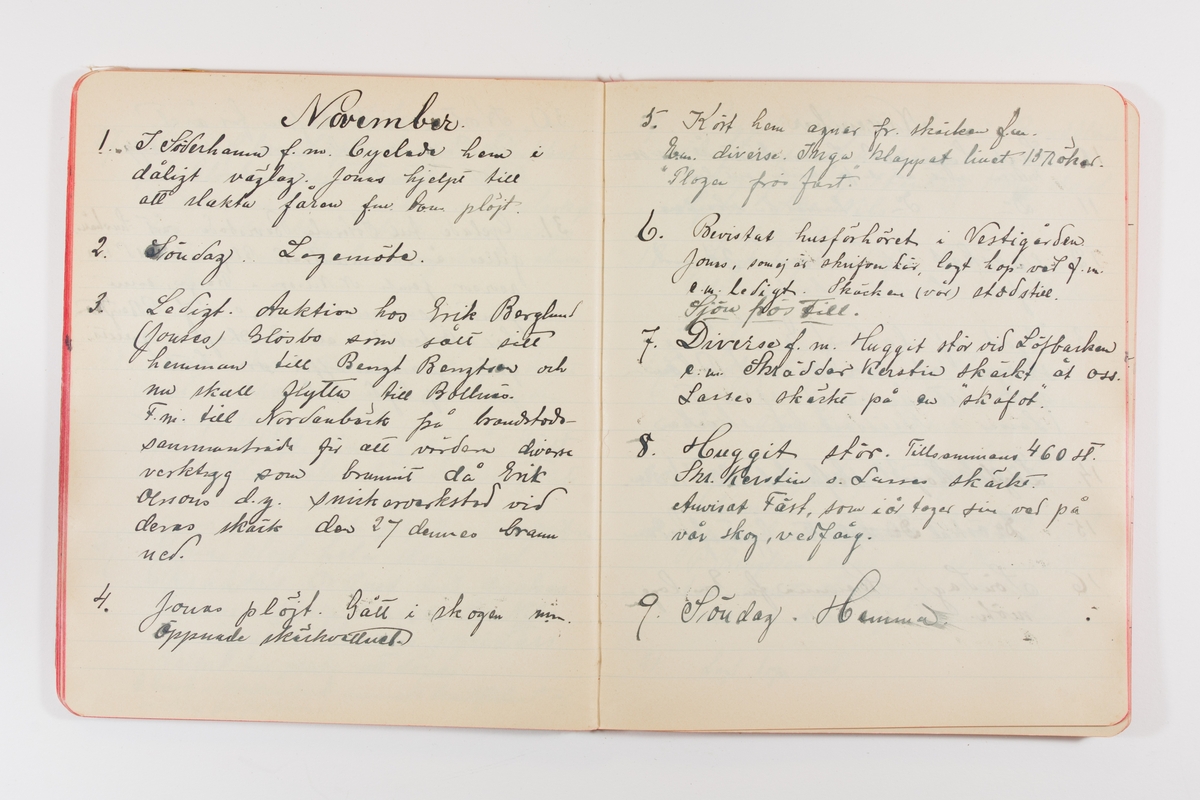 November.
1. I Söderhamn f.m. Cyclade hem i
dåligt väglag. Jonas hjelpt till
att slakta fåren f.m. E.m. plöjt.
2. Söndag. Logemöte.
3. Ledigt. Auktion hos Erik Berglund
(Jonses) Glösbo som sålt sitt
hemman till Bengt Bengtson och
nu skall flytta till Bollnäs.
F.m. till Nordanbäck på brandstods-
sammanträde för att värdera diverse
verktyg som brunnit då Erik
Olssons d.y. snickarverkstad vid
deras skäck den 27 dennes brann
ned.
4. Jonas plöjt. Gått i skogen
öppnade skäckvattnet.
5. Kört hem agnar fr. skäcken f.m.
E.m. diverse. Inga klappat linet
Plogen frös fast.
6. Bevistat husförhöret i Vestigården
Jonas, som ej är lagt hop ved f.m.
e.m. ledigt. Skäcken (vår) städs till.
Sjön frös till.
7. Diverse f.m. Huggit stör vid Löfbacken
e.m. Skräddar Kerstin skäckt åt oss.
Lasses skäckt på en "skåfot".
8. Huggit stör. Tillsammans 460 st.
Skr. Kerstin o. Lasses skäckt.
Anvisat Fäst, som i år tager sin ved på
vår skog, vedfång.
9. Söndag. Hemma.